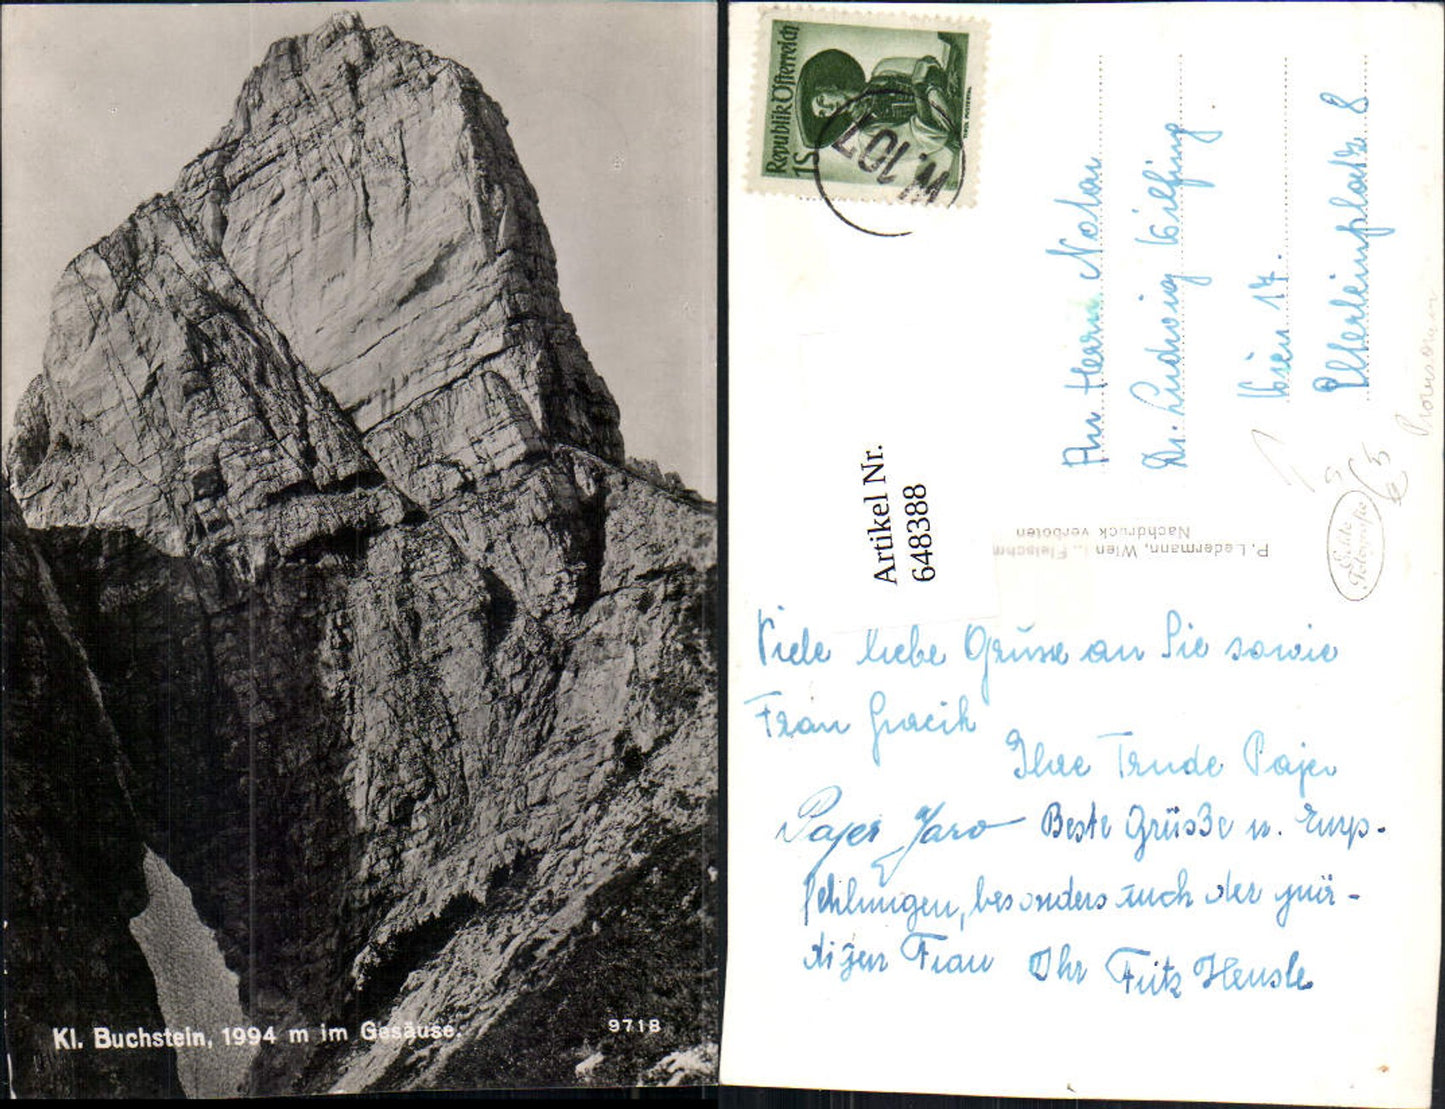 Kl. Buchstein, 1994 m im Gesäuse.
9718
Republik Österreich
1S
W. 107
An Herrn Notar
Dr. Ludwig
Wien 17.
Elterleinplatz 8
Artikel Nr.
648388
P. Ledermann, Wien I., Fleischm
Nachdruck verboten
Echte
Fotografie
Viele liebe Grüsse an Sie sowie
Frau
Ihre Trude Pajer
Pajer Jaro Beste Grüsse u. Emp-
fehlungen, besonders auch der gnä-
digen Frau Ihr Fritz Hensle